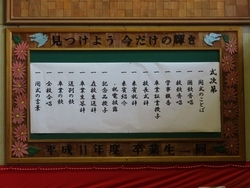 見つけよう 今だけの輝き
式次第
一 開式のことば
一 国歌斉唱
一 校歌斉唱
一 学事報告
一 卒業証書授与
一 学校長式辞
一 来賓祝辞
一 来賓紹介
一 祝電披露
一 記念品授与
一 在校生送辞
一 卒業生答辞
一 送別の歌
一 卒業の歌
一 閉式の言葉
平成11年度 卒業生一同